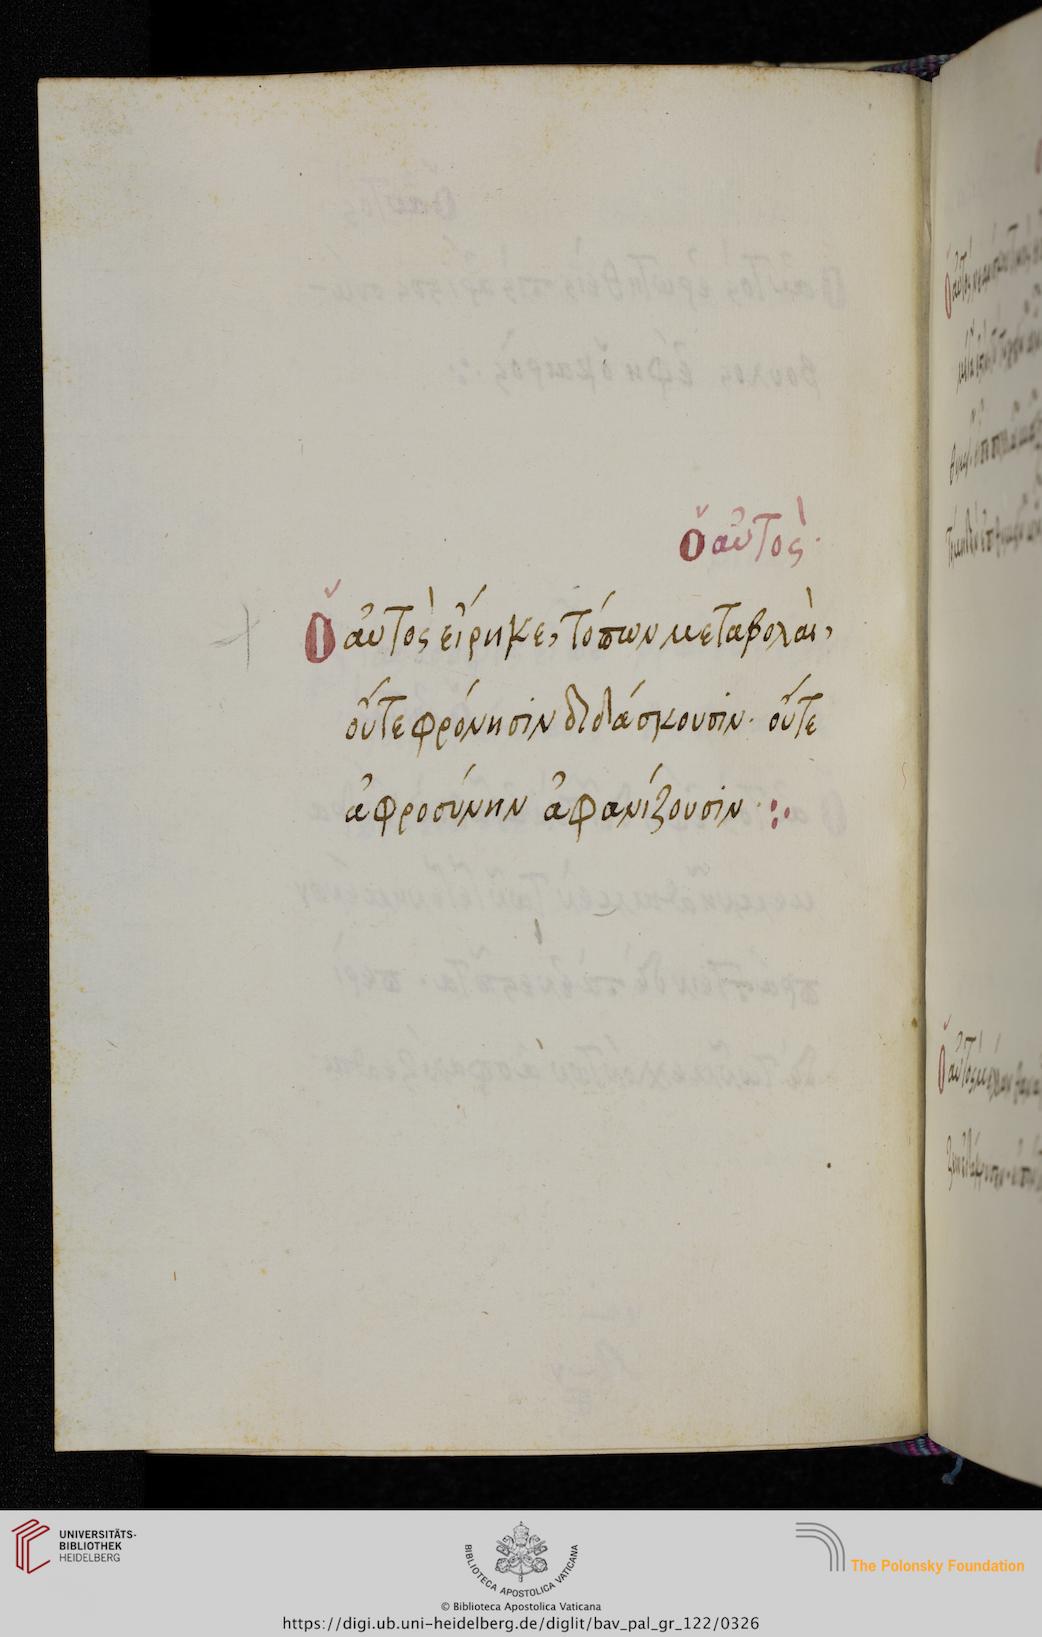 Ὁ αὐτὸς·
Ὁ αὐτὸς εἴρηκε, τόπων μεταβολαὶ,
οὔτε φρόνησιν διδάσκουσιν· οὔτε
ἀφροσύνην ἀφανίζουσιν·:·
UNIVERSITÄTS-
BIBLIOTHEK
HEIDELBERG
BIBLIOTECA APOSTOLICA VATICANA
The Polonsky Foundation
© Biblioteca Apostolica Vaticana
https://digi.ub.uni-heidelberg.de/diglit/bav_pal_gr_122/0326